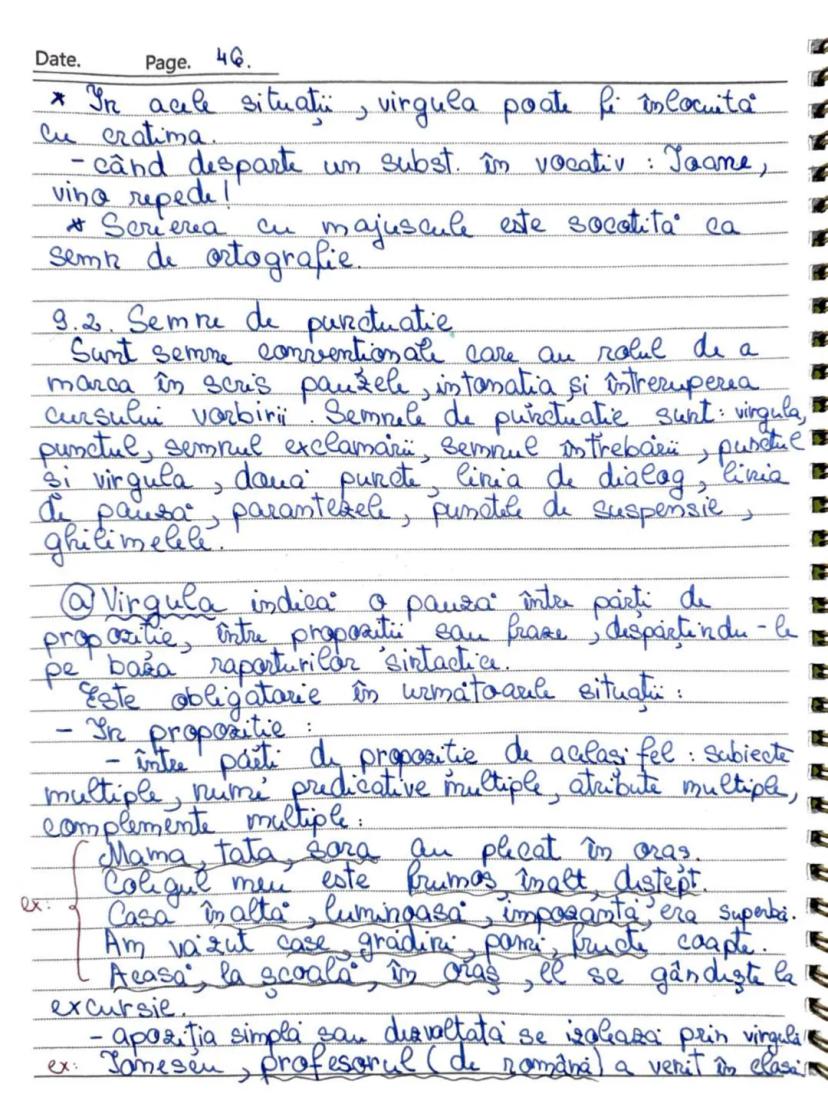 Date. Page. 46.
* In acele situații, virgula poate fi înlocuită
cu cratima.
- când desparte un subst. în vocativ : Ioane,
vino repede!
* Scrierea cu majuscule este socotită ca
semn de ortografie.
9.2. Semne de punctuatie
Sunt semne conventionale care au rolul de a
marca în scris pauzele, intonatia și întreruperea
cursului vorbirii. Semnele de punctuatie sunt: virgula,
punctul, semnul exclamării, semnul întrebării, punctul
si virgula, două puncte, linia de dialog, linia
de pauză, parantezele, punctele de suspensie,
ghilimelele.
(a) Virgula indică o pauză între părți de
propozitie, între propozitii sau fraze, despărtindu-le
pe baza raporturilor sintactice.
Este obligatorie în următoarele situații :
- In propozitie :
- între părti de propozitie de acelasi fel : subiecte
multiple, nume predicative multiple, atribute multiple,
complemente multiple :
Mama, tata, sora au plecat în oraș.
Colegul meu este frumos, înalt, deștept.
ex: Casa înaltă, luminoasă, impozantă, era superbă.
Am văzut case, grădini, pomi, fructe coapte.
Acasă, la școală, în oraș, el se gândește la
excursie.
- apoziția simplă sau dezvoltată se izolează prin virgulă
ex: Ionescu, profesorul (de română) a venit în clasă